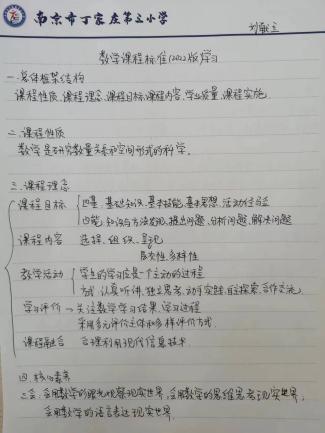 南京市丁家庄第二小学
数学课程标准(2022版)学习
一.总体框架结构
课程性质、课程理念、课程目标、课程内容、学业质量、课程实施.
二.课程性质
数学是研究数量关系和空间形式的科学.
三.课程理念
课程目标 四基:基础知识、基本技能、基本思想、活动经验
四能:发现、提出问题、分析问题、解决问题
课程内容 选择、组织、呈现
层次性、多样性
教学活动 学生的学习应是一个主动的过程
方式:认真听讲、独立思考、动手实践、自主探索、合作交流
学习评价→关注数学学习结果、学习过程
采用多元评价主体和多样评价方式.
课程融合 合理利用现代信息技术.
四.核心素养
三会:会用数学的眼光观察现实世界,会用数学的思维思考现实世界,
会用数学的语言表达现实世界.